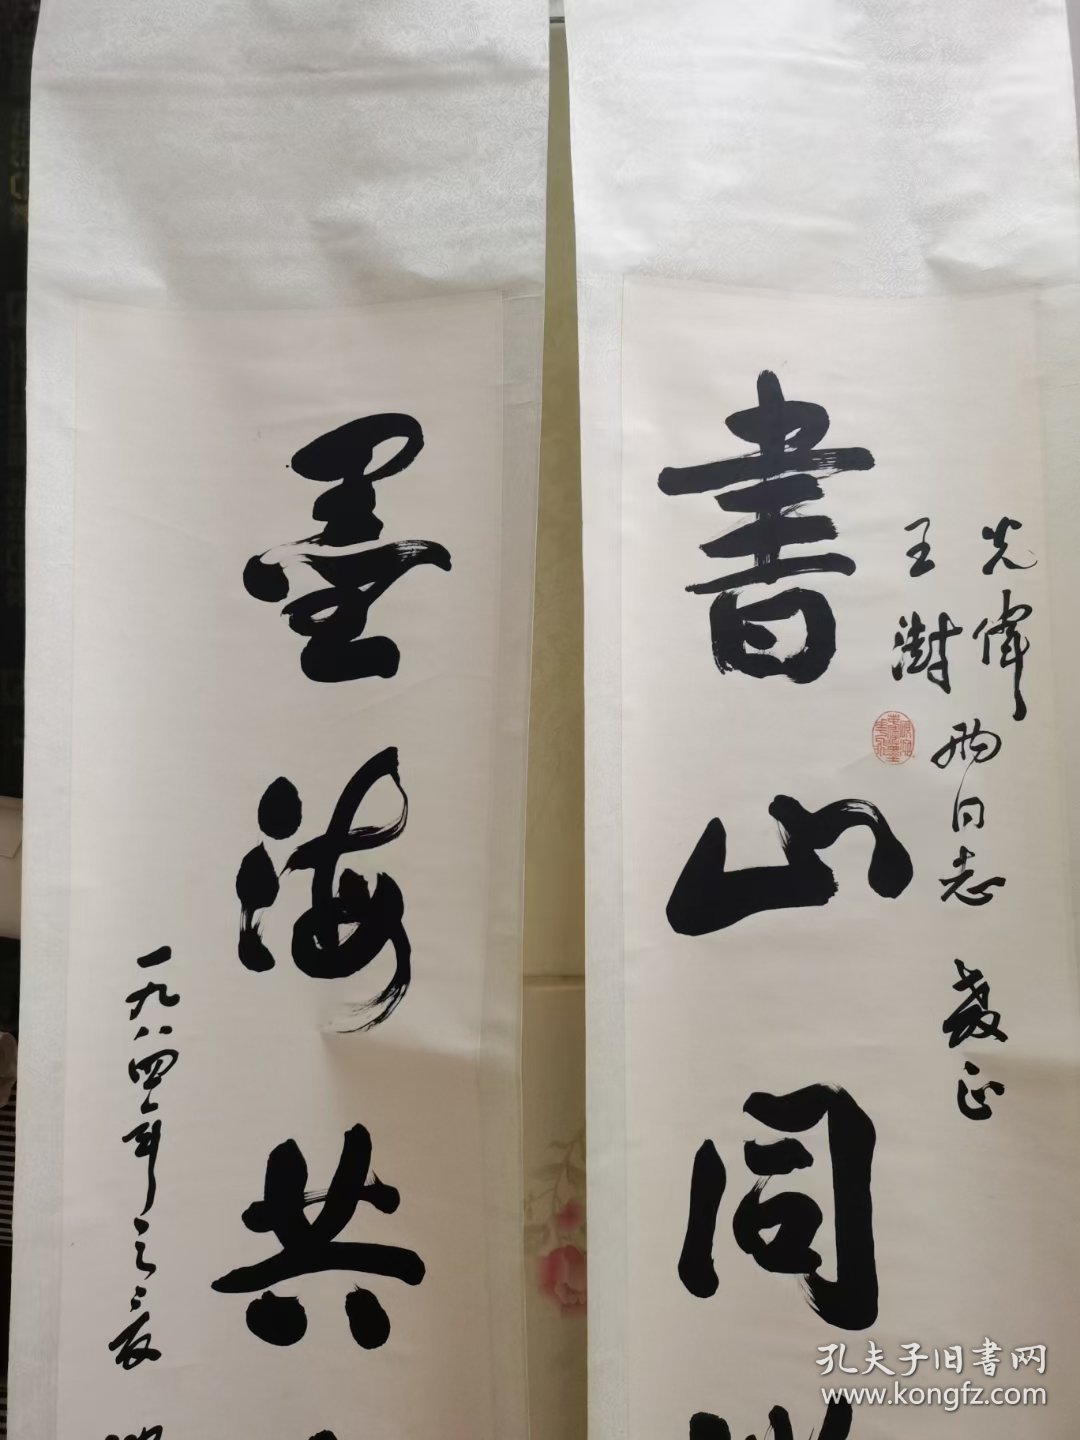 光偉
王澍
两同志教正
書山同
墨海共
一九八四年
孔夫子旧書网
www.kongfz.com